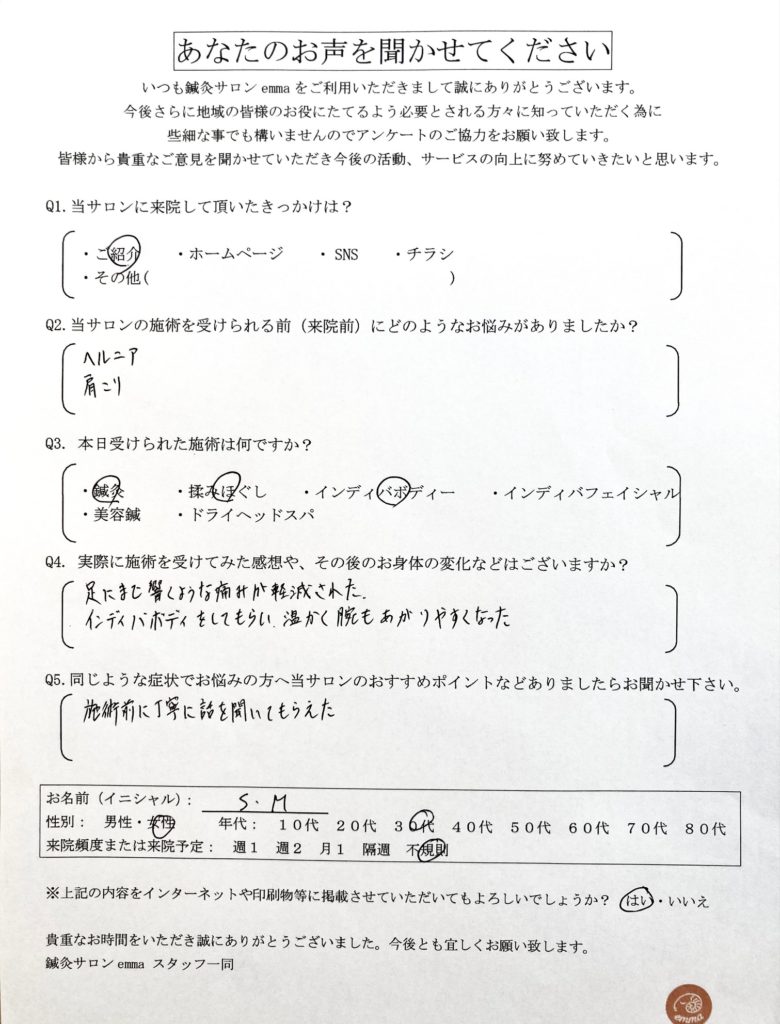 あなたのお声を聞かせてください
いつも鍼灸サロン emma をご利用いただきまして誠にありがとうございます。
今後さらに地域の皆様のお役にたてるよう必要とされる方々に知っていただく為に
些細な事でも構いませんのでアンケートのご協力をお願い致します。
皆様から貴重なご意見を聞かせていただき今後の活動、サービスの向上に努めていきたいと思います。
Q1. 当サロンに来院して頂いたきっかけは？
・ご紹介 ・ホームページ ・SNS ・チラシ
・その他( )
Q2. 当サロンの施術を受けられる前（来院前）にどのようなお悩みがありましたか？
ヘルニア
肩こり
Q3. 本日受けられた施術は何ですか？
・鍼灸 ・揉みほぐし ・インディバボディー ・インディバフェイシャル
・美容鍼 ・ドライヘッドスパ
Q4. 実際に施術を受けてみた感想や、その後のお身体の変化などはございますか？
足にまで響くような痛みが軽減された.
インディバボディをしてもらい、温かく腕もあがりやすくなった
Q5. 同じような症状でお悩みの方へ当サロンのおすすめポイントなどありましたらお聞かせ下さい。
施術前に丁寧に話を聞いてもらえた
お名前（イニシャル）： S.M
性別： 男性・女性 年代： １０代 ２０代 ３０代 ４０代 ５０代 ６０代 ７０代 ８０代
来院頻度または来院予定： 週１ 週２ 月１ 隔週 不規則
※上記の内容をインターネットや印刷物等に掲載させていただいてもよろしいでしょうか？ はい・いいえ
貴重なお時間をいただき誠にありがとうございました。今後とも宜しくお願い致します。
鍼灸サロン emma スタッフ一同
emma